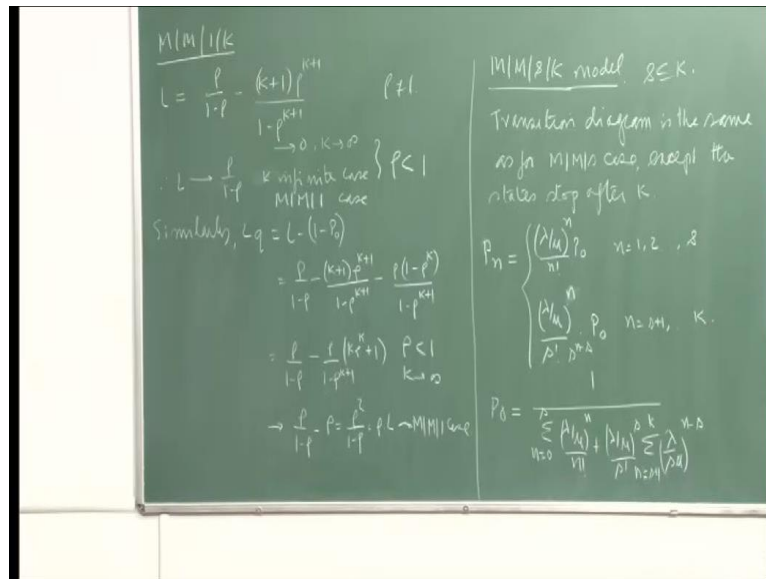 M/M/1/K
L = ρ/(1-ρ) - (K+1)ρ^(K+1)/(1-ρ^(K+1))   ρ≠1
→ 0, K→∞
∴ L → ρ/(1-ρ)   K infinite case } ρ<1
M/M/1 case
Similarly, Lq = L-(1-P₀)
= ρ/(1-ρ) - (K+1)ρ^(K+1)/(1-ρ^(K+1)) - ρ(1-ρ^K)/(1-ρ^(K+1))
= ρ/(1-ρ) - ρ/(1-ρ^(K+1)) (Kρ^K+1)   ρ<1
K→∞
→ ρ/(1-ρ) - ρ = ρ²/(1-ρ) = ρL → M/M/1 case
M/M/s/K model. s≤K.
Transition diagram is the same
as for M/M/s case, except the
states stop after K.
Pn = { (λ/μ)^n/n! P₀   n=1,2 , s
(λ/μ)^n/(s! s^(n-s)) . P₀   n=s+1, K.
P₀ = 1/(Σ_{n=0}^{s} (λ/μ)^n/n! + (λ/μ)^s/s! Σ_{n=s+1}^{K} (λ/sμ)^(n-s))